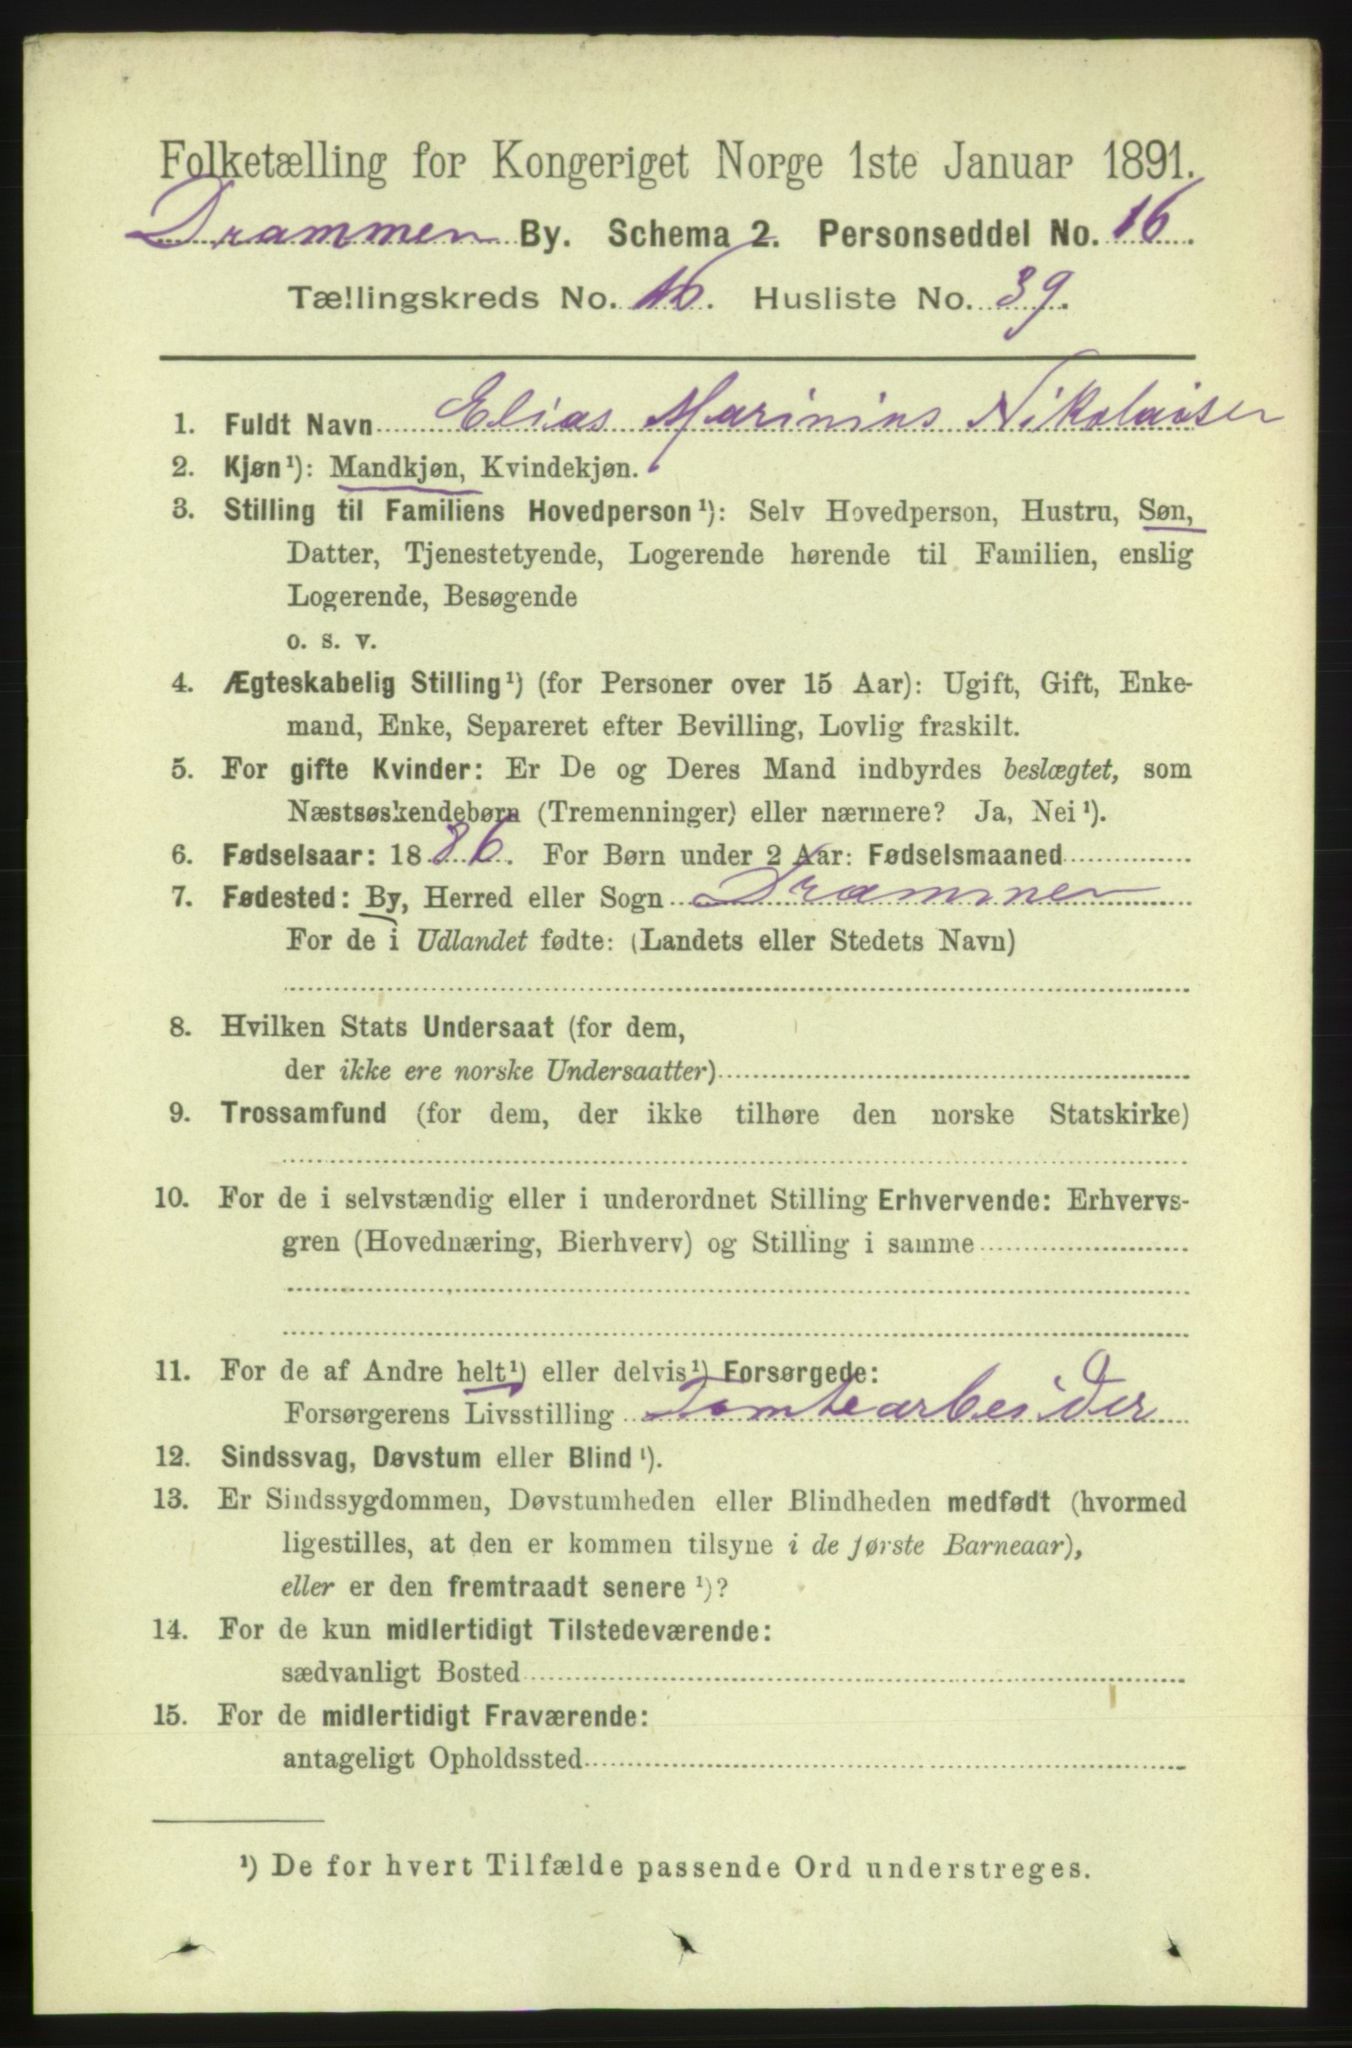 Folketælling for Kongeriget Norge 1ste Januar 1891.
Drammen By. Schema 2. Personseddel No. 16.
Tællingskreds No. 16. Husliste No. 39.
1. Fuldt Navn Elias Marinius Nikolaisen
2. Kjøn¹): Mandkjøn, Kvindekjøn.
3. Stilling til Familiens Hovedperson¹): Selv Hovedperson, Hustru, Søn,
Datter, Tjenestetyende, Logerende hørende til Familien, enslig
Logerende, Besøgende
o. s. v.
4. Ægteskabelig Stilling¹) (for Personer over 15 Aar): Ugift, Gift, Enke-
mand, Enke, Separeret efter Bevilling, Lovlig fraskilt.
5. For gifte Kvinder: Er De og Deres Mand indbyrdes beslægtet, som
Næstsøskendebørn (Tremenninger) eller nærmere? Ja, Nei¹).
6. Fødselsaar: 1886. For Børn under 2 Aar: Fødselsmaaned
7. Fødested: By, Herred eller Sogn Drammen
For de i Udlandet fødte: (Landets eller Stedets Navn)
8. Hvilken Stats Undersaat (for dem,
der ikke ere norske Undersaatter)
9. Trossamfund (for dem, der ikke tilhøre den norske Statskirke)
10. For de i selvstændig eller i underordnet Stilling Erhvervende: Erhvervs-
gren (Hovednæring, Bierhverv) og Stilling i samme
11. For de af Andre helt¹) eller delvis¹) Forsørgede:
Forsørgerens Livsstilling Tomtearbeider
12. Sindssvag, Døvstum eller Blind¹).
13. Er Sindssygdommen, Døvstumheden eller Blindheden medfødt (hvormed
ligestilles, at den er kommen tilsyne i de første Barneaar),
eller er den fremtraadt senere¹)?
14. For de kun midlertidigt Tilstedeværende:
sædvanligt Bosted
15. For de midlertidigt Fraværende:
antageligt Opholdssted
¹) De for hvert Tilfælde passende Ord understreges.